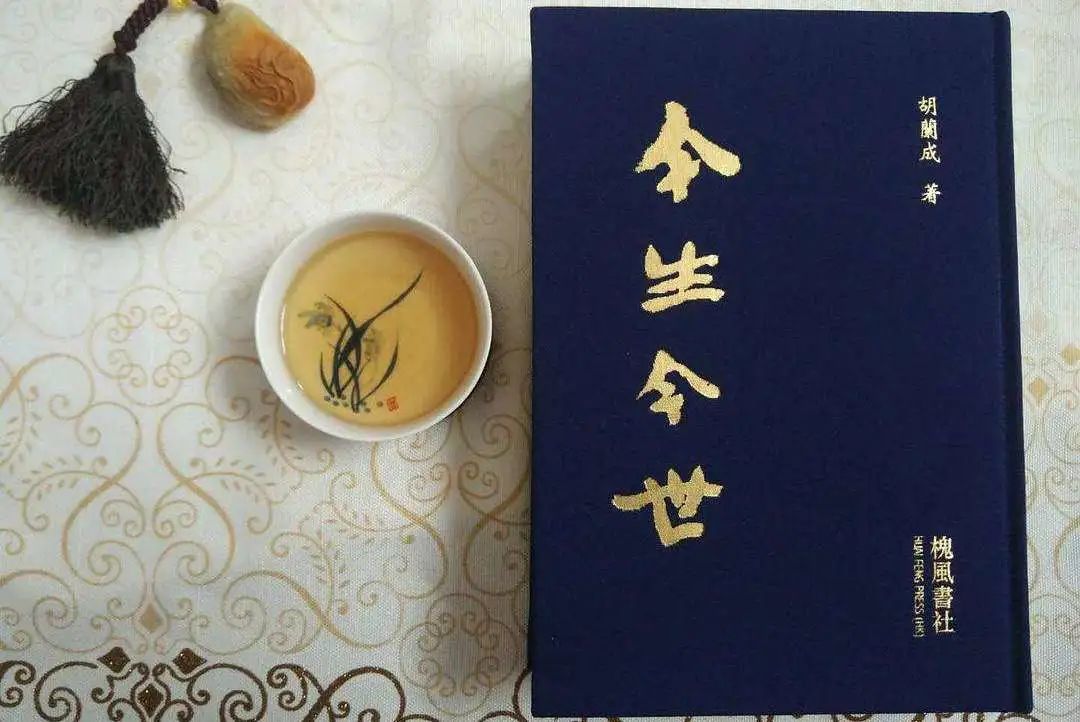 今生今世
胡蘭成 著
槐風書社
HUAI FENG PRESS (HK)